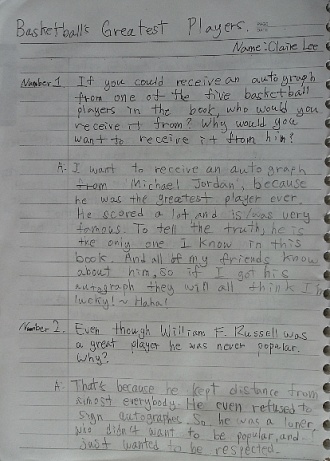 Basketball's Greatest Players.
Name: Claire Lee
Number 1 If you could receive an autograph
from one of the five basketball
players in the book, who would you
receive it from? Why would you
want to receive it from him?
A- I want to receive an autograph
from Michael Jordan, because
he was the greatest player ever.
He scored a lot and is/was very
famous. To tell the truth, he is
the only one I know in this
book. And all of my friends know
about him, so if I got his
autograph they will all think I'm
lucky! ~ Haha!
Number 2. Even though William F. Russell was
a great player he was never popular.
Why?
A- That's because he kept distance from
almost everybody. He even refused to
sign autographs. So he was a loner,
who didn't want to be popular, and
just wanted to be respected.